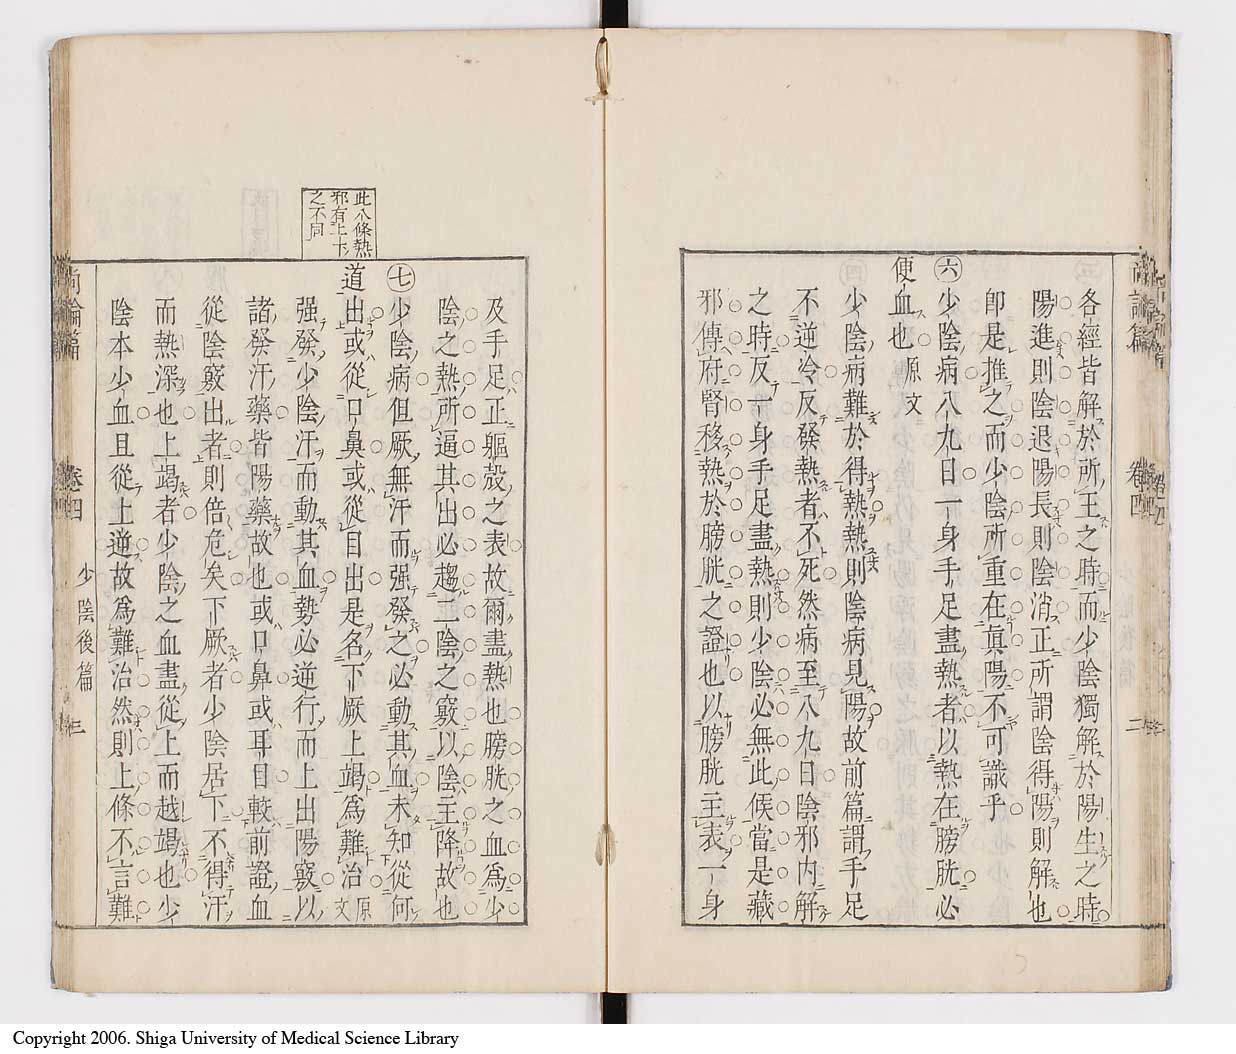 各經皆解於所王之時而少陰獨解於陽生之時
陽進則陰退陽長則陰消正所謂陰得陽則解也
即是推之而少陰所重在眞陽不可識乎
㊅少陰病八九日一身手足盡熱者以熱在膀胱必
便血也 原文
少陰病難於得熱熱則陰病見陽故前篇謂手足
不逆冷反發熱者不死然病至八九日陰邪内解
之時反一身手足盡熱則少陰必無此候當是藏
邪傳府腎移熱於膀胱之證也以膀胱主表一身
卷四
二
此八條熱
邪有上下
之不同
及手足正軀殼之表故爾盡熱也膀胱之血爲少
陰之熱所逼其出必趨二陰之竅以陰主降故也
㊆少陰病但厥無汗而强發之必動其血未知從何
道出或從口鼻或從目出是名下厥上竭爲難治 原文
强發少陰汗而動其血勢必逆行而上出陽竅以
諸發汗藥皆陽藥故也或口鼻或耳目較前證血
從陰竅出者則倍危矣下厥者少陰居下不得汗
而熱深也上竭者少陰之血盡從上而越竭也少
陰本少血且從上逆故爲難治然則上條不言難
尚論篇 卷四 少陰後篇 三
Copyright 2006. Shiga University of Medical Science Library